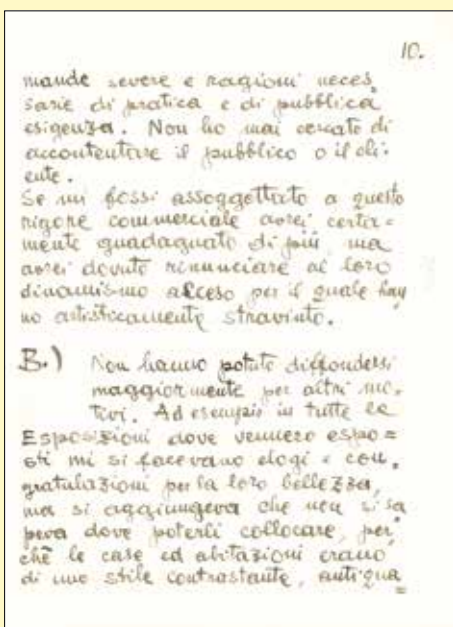 10.
mande severe e ragioni neces
sarie di pratica e di pubblica
esigenza. Non ho mai cercato di
accontentare il pubblico o il cli-
ente.
Se mi fossi assoggettato a questo
rigore commerciale avrei certa=
mente guadagnato di più, ma
avrei dovuto rinunciare al loro
dinamismo acceso per il quale han
no artisticamente stravinto.
B.) Non hanno potuto diffondersi
maggiormente per altri mo-
tivi. Ad esempio in tutte le
Esposizioni dove vennero espo=
sti mi si facevano elogi e con-
gratulazioni per la loro bellezza,
ma si aggiungeva che non si sa
peva dove poterli collocare, per
chè le case ed abitazioni erano
di uno stile contrastante, antiqua=